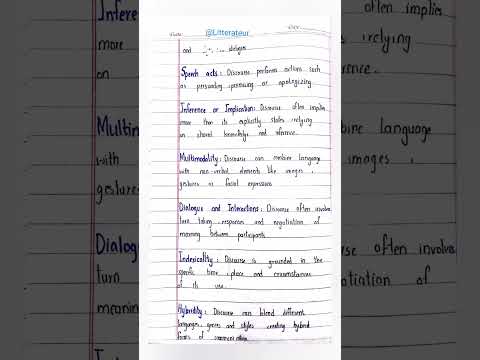 @Litterateur
and
Speech acts : Discourse perform actions such
as persuading promising or apologizing
Inference or Implication: Discourse often implies
more than its explicitly states relying
on shared knowledge and inference.
Multimodality : Discourse can combine language
with non-verbal elements like images ,
gestures or facial expressions
Dialogue and Interactions : Discourse often involves
turn taking responses and negotiation of
meaning between participants.
Indexicality : Discourse is grounded in the
specific time , place and circumstances
of its use.
Hybridity : Discourse can blend different
languages, genres and styles creating hybrid
forms of communication